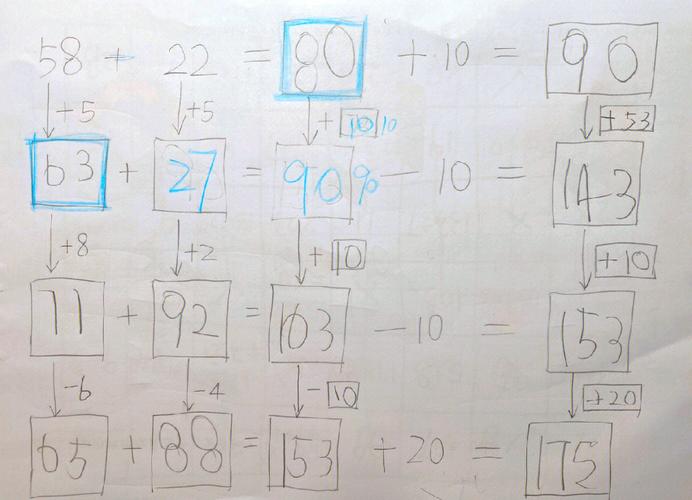 58 + 22 = 80 + 10 = 90
+5 +5 + 10 10 +53
63 + 27 = 90 % - 10 = 143
+8 +2 + 10 +10
71 + 92 = 163 - 10 = 153
-6 -4 - 10 +20
65 + 88 = 153 + 20 = 175